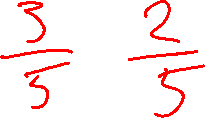 3/5 2/5